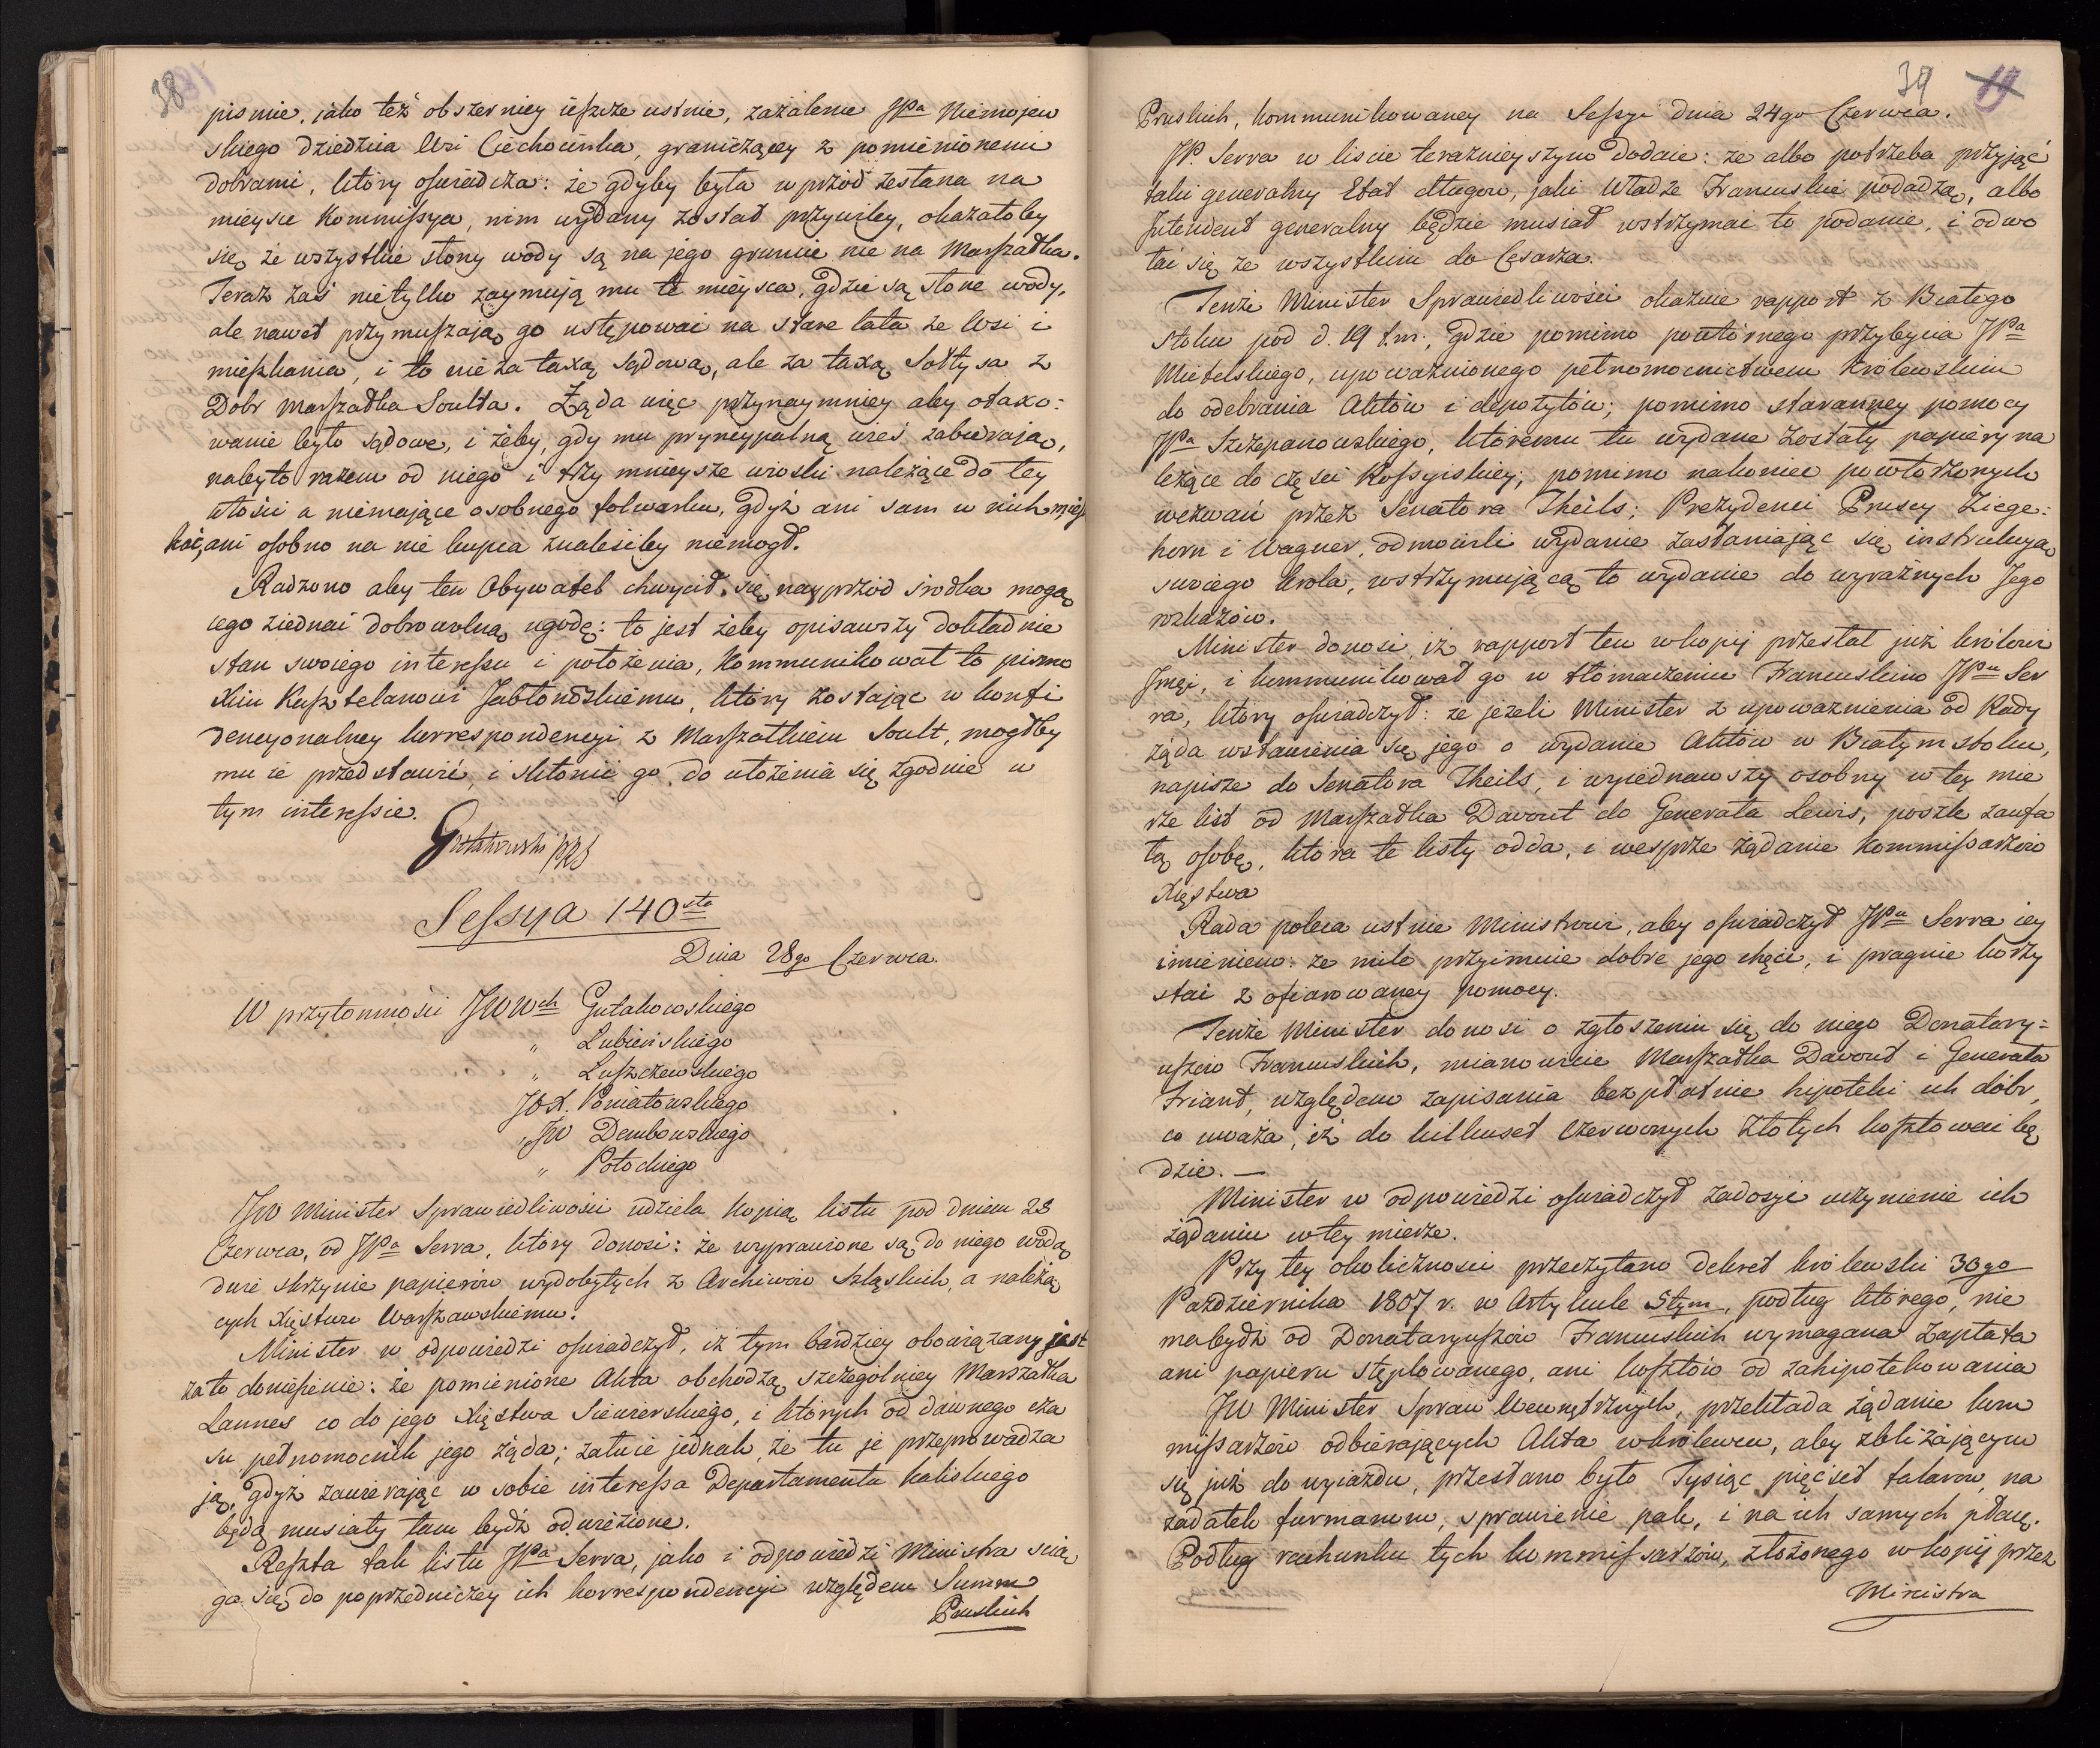 38
pismie, jako też obszerniey ieszcze ustnie, zażalenie JPa Niemojew
skiego dziedzica Wsi Ciechocinka, graniczącey z pomienionemi
dobrami, który oświadcza: że gdyby była wprzód zesłana na
mieysce Kommissya, nim wydany został przywiley, okazałoby
się że wszystkie słony wody są na jego gruncie nie na Marszałka.
Teraz zaś nietylko zaymują mu te mieysca, gdzie są słone wody,
ale nawet przymuszają go ustępować na stare lata ze Wsi i
mieszkania, i to nie za taxą sądową, ale za taxą Sołtysa z
Dobr Marszałka Soulta. Żąda więc przynaymniey aby otaxo:
wanie było sądowe, i żeby, gdy mu pryncypalną wieś zabierają,
nabyto razem od niego i trzy mnieysze wioski należące do tey
włości a niemające osobnego folwarku, gdyż ani sam w nich miesz
kać, ani osobno na nie kupca znalesćby niemogł.
Radzono aby ten Obywatel chwycił się nayprzód srodka mogą
cego ziednać dobrowolną ugodę: to jest żeby opisawszy dokładnie
stan swoiego interessu i położenia, Kommunikował to pismo
Xciu Kasztelanowi Jabłonowskiemu, który zostając w konfi
dencyonalney korrespondencyi z Marszałkiem Soult, mogłby
mu ie przedstawić, i skłonić go do ułożenia się zgodnie w
tym interessie.
Gutakowski PRS
Sessya 140sta
Dnia 28go Czerwca.
W przytomności JWWch Gutakowskiego
" Lubieńskiego
" Łuszczewskiego
JOX. Poniatowskiego
" JW Dembowskiego
" Potockiego
JW Minister Sprawiedliwości udziela kopią listu pod dniem 23
Czerwca, od JPa Serra, który donosi: że wyprawione są do niego wodą
dwie skrzynie papierów wydobytych z Archiwów Szląskich, a należą
cych Xięstwu Warszawskiemu.
Minister w odpowiedzi oświadczył, iż tym bardziey obowiązany jest
za to doniesienie: że pomienione Akta obchodzą szczególniey Marszałka
Lannes co do jego Xięstwa Siewierskiego, i których od dawnego cza
su pełnomocnik jego żąda; żałuie jednak, że tu je przeprowadza
ją, gdyż zawierając w sobie interessa Departamentu Kaliskiego
będą musiały tam bydź odwiezione.
Reszta tak listu JPa Serra, jako i odpowiedzi Ministra ścią
ga się do poprzedniczey ich korrespondencyi względem Summ
Pruskich
39
Pruskich, kommunikowaney na Sessyi dnia 24go Czerwca.
JP. Serra w liście teraznieyszym dodaie: że albo potrzeba przyjąć
taki generalny Etat długow, jaki Władze Francuskie podadzą, albo
Intendent generalny będzie musiał wstrzymać to podanie, i odwo
łać się ze wszystkim do Cesarza.
Tenże Minister Sprawiedliwości okazuie rapport z Białego
stoku pod d. 19 t.m.; gdzie pomimo powtórnego przybycia JPa
Mielelskiego, upoważnionego pełnomocnictwem Królewskim
do odebrania Aktów i depozytów; pomimo staranney pomocy
JPa Szczepanowskiego, któremu tu wydane zostały papiery na
leżące do części Rossyiskiey; pomimo nakoniec powtorzonych
wezwań przez Senatora Theils; Prezydenci Pruscy Ziege:
horn i Wagner, odmówili wydanie zasłaniając się instrukcyą
swoiego króla, wstrzymującą to wydanie do wyraźnych Jego
rozkazów.
Minister donosi, iż rapport ten w kopij przesłał już królowi
Jmci, i kommunikował go w tłomaczeniu Francuskim JPu Ser
ra, który oświadczył: że jeżeli Minister z upoważnienia od Rady
żąda wstawienia się jego o wydanie Aktów w Białymstoku,
napisze do Senatora Theils, i wyiednawszy osobny w tey mie
rze list od Marszałka Davout do Generała Lewis, poszle zaufa
tą osobę, która te listy odda, i wesprze żądanie Kommissarzów
Xięstwa
Rada poleca ustnie Ministrowi, aby oświadczył JPu Serra iey
imieniem: że mile przyimuie dobre jego chęci, i pragnie korzy
stać z ofiarowaney pomocy.
Tenże Minister donosi o zgłoszeniu się do niego Donatary=
uszów Francuskich, mianowicie Marszałka Davout i Generała
Friant, względem zapisania bezpłatnie hipoteki ich dóbr,
co uważa, iż do kilkuset czerwonych złotych kosztować bę
dzie. —
Minister w odpowiedzi oświadczył zadosyć uczynienie ich
żądaniu w tey mierze.
Przy tey okoliczności przeczytano dekret królewski 30go
Października 1807 r. w Artykule 5tym, podług którego, nie
ma bydź od Donataryuszów Francuskich wymagana zapłata
ani papieru stęplowanego, ani kosztów od zahipotekowania
JW Minister Spraw Wewnętrznych, przekłada żądanie kom
missarzów odbierających Akta w Królewcu, aby zbliżającym
się już do wyiazdu, przesłano było Tysiąc pięćset talarów, na
zadatek furmanom, sprawienie pak, i na ich samych płacę.
Podług rachunku tych kommissarzów, złożonego w kopij przez
Ministra